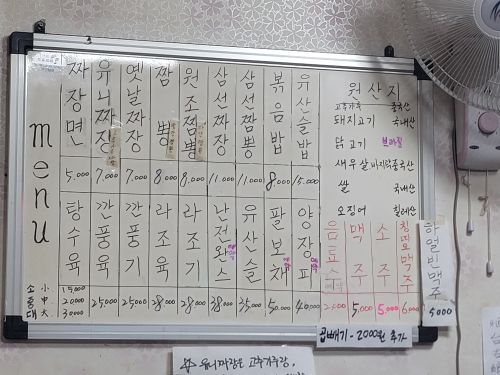 menu
짜장면 5.000
유니짜장 7.000
옛날짜장 7.000
짬뽕 8.000
원조짬뽕 8.000
삼선짜장 11.000
삼선짬뽕 11.000
볶음밥 8.000
유산슬밥 15.000
탕수육
소 小 15000
중 中 20000
대 大 30000
깐풍육 25000
깐풍기 25000
라조육 28000
라조기 28000
난전완스 38000
유산슬 35000
팔보채 50000
양장피 40000
원산지
고추가루 중국산
돼지고기 국내산
닭고기 브라질
새우살 바지락 중국산
쌀 국내산
오징어 칠레산
음료수 2000
맥주 5,000
소주 5,000
칭따오맥주 6,000
하얼빈맥주 5000
곱빼기 - 2000원 추가